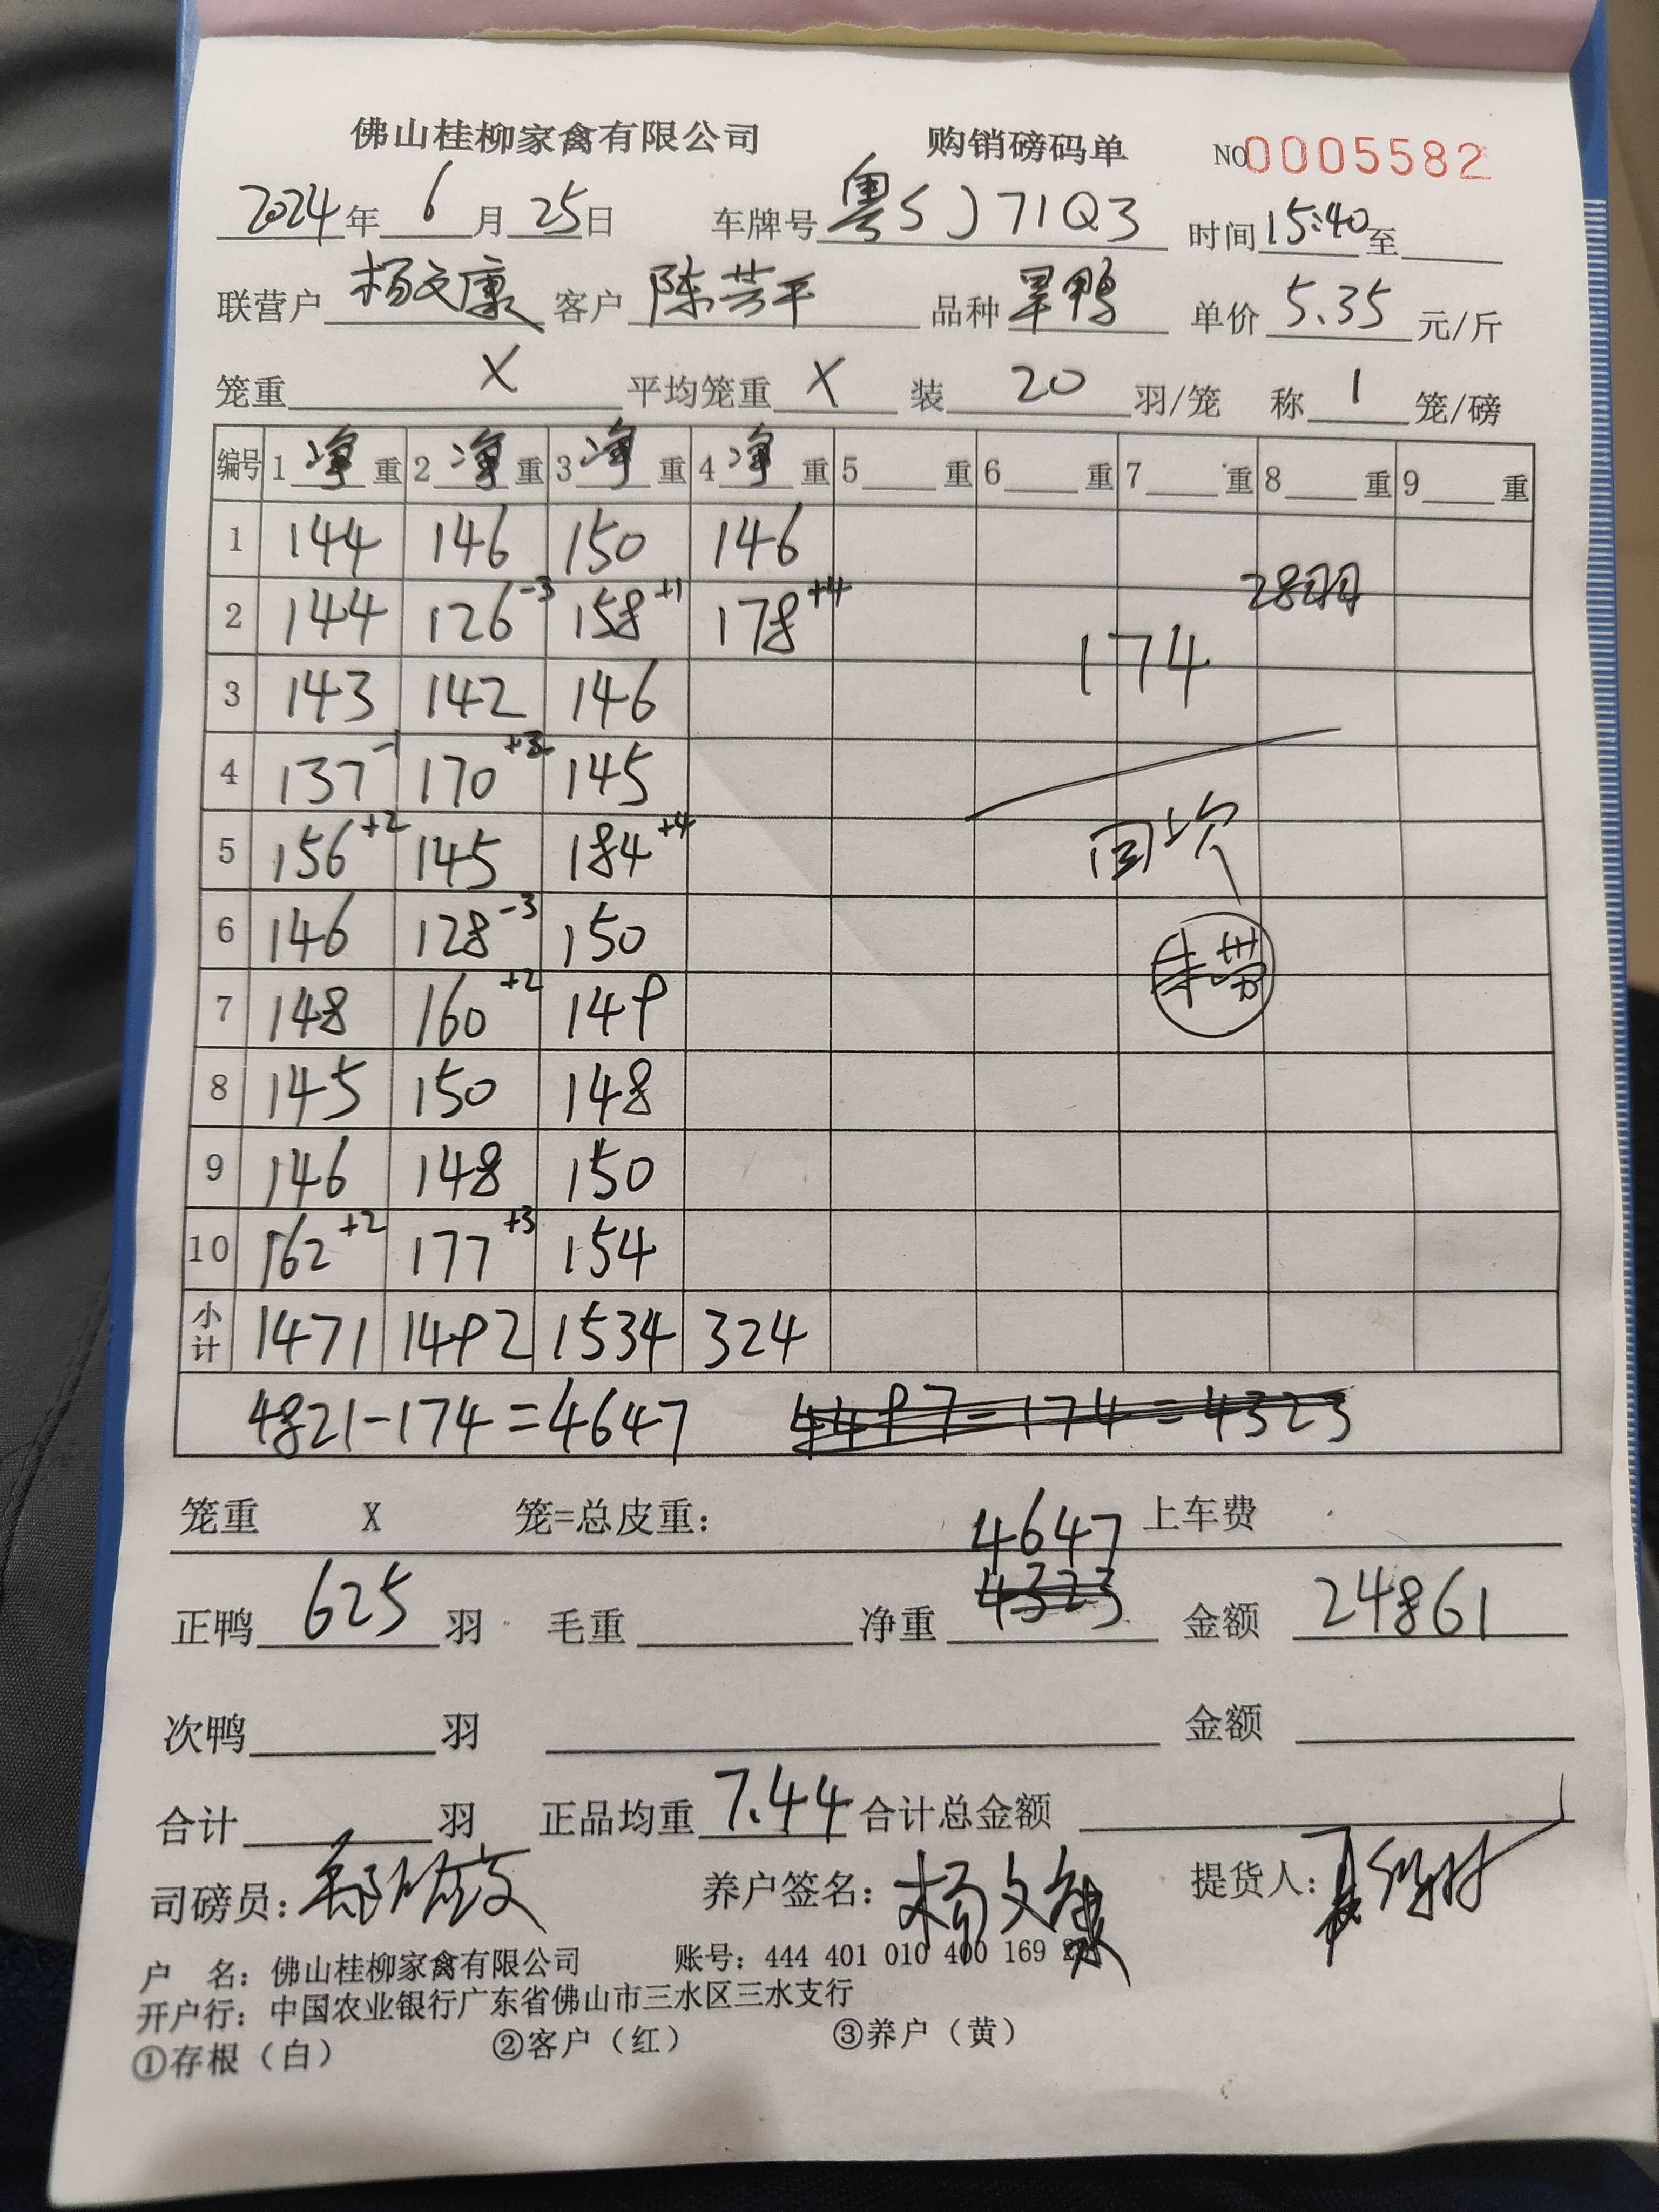 佛山桂柳家禽有限公司 购销磅码单 NO0005582
2024年 6月 25日 车牌号 粤SJ71Q3 时间 15:40至
联营户 杨文康 客户 陈芳平 品种 旱鸭 单价 5.35 元/斤
笼重 X 平均笼重 X 装 20 羽/笼 称 1 笼/磅
编号 1净重 2净重 3净重 4净重 5重 6重 7重 8重 9重
1 144 146 150 146
28羽
2 144 126-3 158+1 178+4
174
3 143 142 146
4 137-1 170+3 145
5 156+2 145 184+4
回次
6 146 128-3 150
7 148 160+2 149
8 145 150 148
9 146 148 150
10 162+2 177+3 154
小计 1471 1492 1534 324
4821-174=4647 4497-174=4323
笼重 X 笼=总皮重: 上车费
4647
正鸭 625 羽 毛重 净重 4323 金额 24861
次鸭 羽 金额
合计 羽 正品均重 7.44 合计总金额
司磅员: 养户签名: 杨文康 提货人:
户 名: 佛山桂柳家禽有限公司 账号: 444 401 010 400 169
开户行: 中国农业银行广东省佛山市三水区三水支行
①存根（白） ②客户（红） ③养户（黄）